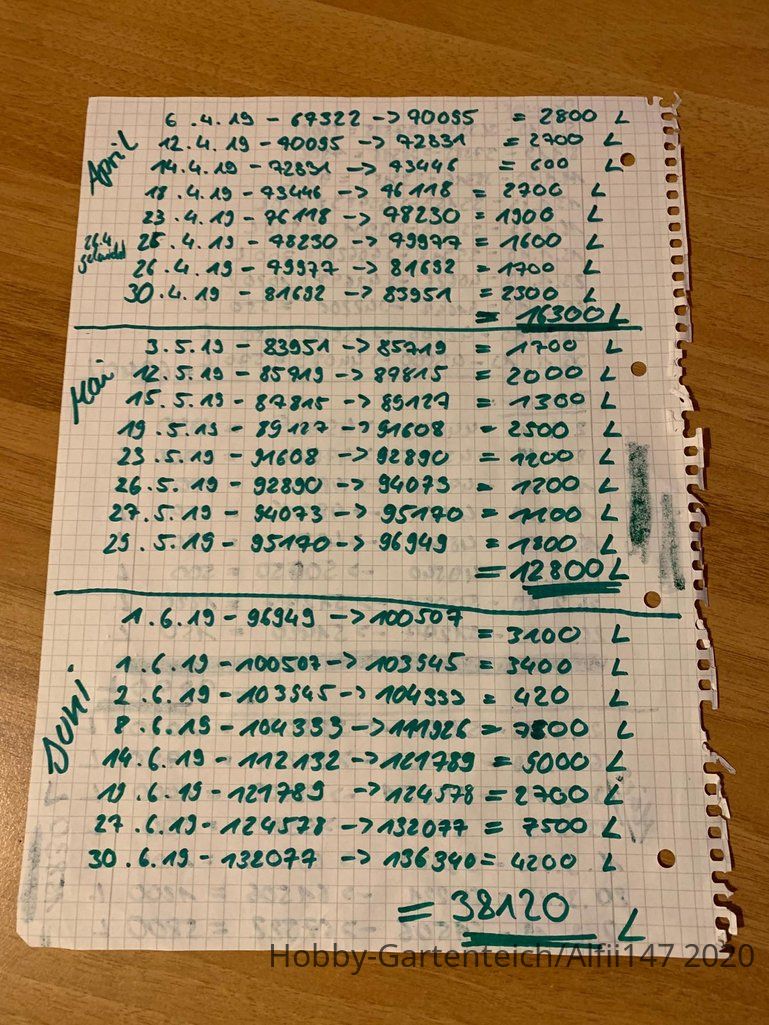 April
6.4.19 - 67322 -> 70095 = 2800 L
12.4.19 - 70095 -> 72831 = 2700 L
14.4.19 - 72831 -> 73446 = 600 L
18.4.19 - 73446 -> 76118 = 2700 L
23.4.19 - 76118 -> 78230 = 1900 L
25.4.19 - 78230 -> 79977 = 1600 L
26.4.19 - 79977 -> 81692 = 1700 L
30.4.19 - 81692 -> 83951 = 2300 L
= 16300 L
Mai
3.5.19 - 83951 -> 85719 = 1700 L
12.5.19 - 85719 -> 87815 = 2000 L
15.5.19 - 87815 -> 89127 = 1300 L
19.5.19 - 89127 -> 91608 = 2500 L
23.5.19 - 91608 -> 92890 = 1200 L
26.5.19 - 92890 -> 94073 = 1200 L
27.5.19 - 94073 -> 95170 = 1100 L
29.5.19 - 95170 -> 96949 = 1800 L
= 12800 L
Juni
1.6.19 - 96949 -> 100507 = 3100 L
1.6.19 - 100507 -> 103945 = 3400 L
2.6.19 - 103945 -> 104333 = 420 L
8.6.19 - 104333 -> 111926 = 7800 L
14.6.19 - 112132 -> 121789 = 5000 L
19.6.19 - 121789 -> 124578 = 2700 L
27.6.19 - 124578 -> 132077 = 7500 L
30.6.19 - 132077 -> 136340 = 4200 L
= 38120 L
Hobby-Gartenteich/Alfii147 2020